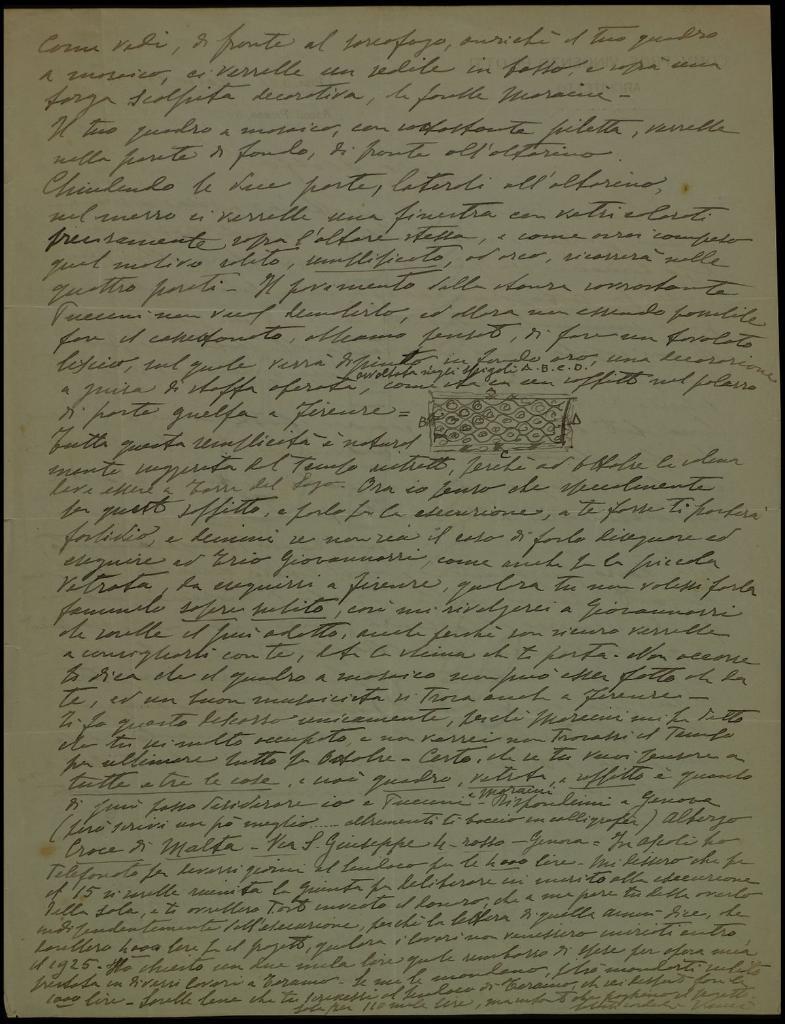 Come vedi, di fronte al sarcofago, anzichè il tuo quadro
a mosaico, ci verrebbe un sedile in basso, e sopra una
targa scolpita decorativa, la farebbe Maraini -
Il tuo quadro a mosaico, con sottostante piletta, verrebbe
nella parete di fondo, di fronte all'altarino.
Chiudendo le due porte, laterali all'altarino,
nel mezzo ci verrebbe una finestra con vetri colorati
precisamente sopra l'altare stesso, e come vedi compeso
quel motivo solito, semplificato, ad arco, ricorrerà nelle
quattro pareti - Il pavimento della stanza sovrastante
Puccini non vuol demolirlo, ed allora non essendo possibile
fare il cassettonato, abbiamo pensato, di fare un tavolato
liscio, sul quale verrà dipinto in fondo oro, una decorazione
avvoltata sugli spigoli A. B. C. D.
a guisa di stoffa operata, come sta in un soffitto nel palazzo
di parte guelfa a Firenze =
B A C
Tutta questa semplicità è natural
mente suggerita dal tempo ristretto, perchè ad Ottobre la salma
deve essere a Torre del Lago. Ora io penso che specialmente
per questo soffitto, e parlo per la esecuzione, a te forse ti porterà
fastidio, e dimmi se non sia il caso di farlo disegnare ed
eseguire ad Ezio Giovannozzi, come anche per la piccola
vetrata, da eseguirsi a Firenze, qualora tu non volessi farla
fammelo sapere subito, così mi rivolgerei a Giovannozzi
che sarebbe il più adatto, anche perchè son sicuro verrebbe
a consigliarsi con te, data la stima che ti porta - Non occorre
ti dica che il quadro a mosaico non può esser fatto che da
te, ed un buon mosaicista si trova anche a Firenze -
Ti fo questo discorso unicamente, perchè Maraini mi ha detto
che tu sei molto occupato, e non vorrei non trovassi il tempo
per ultimare tutto per Ottobre - Certo, che se tu vuoi pensare a
tutte e tre le cose, e cioè quadro, vetrata, e soffitto è quanto
di più possa desiderare io e Puccini e Maraini - Rispondimi a Genova
(però scrivi un pò meglio..... altrimenti ti boccio in calligrafia) Albergo
Croce di Malta - Via S. Giuseppe 4 - rosso - Genova = In Ascoli ho
telefonato per diversi giorni al sindaco per le 4000 lire - Mi dissero che per
il 15 si sarebbe riunita la giunta per deliberare in merito alla esecuzione
della sala, e ti avrebbero tosto inviato il denaro, che a me pare tu debba averlo
indipendentemente dall'esecuzione, perchè la lettera di quella amm. dice, che
darebbero 4000 lire per il progetto, qualora i lavori non venissero iniziati entro
il 1925 - Ho chiesto un due mila lire quale rimborso di spese per opera mia
prestata in diversi lavori a Teramo - Se me le mandano, potrò mandarti subito
1000 lire - Sarebbe bene che tu scrivessi al sindaco di Teramo,